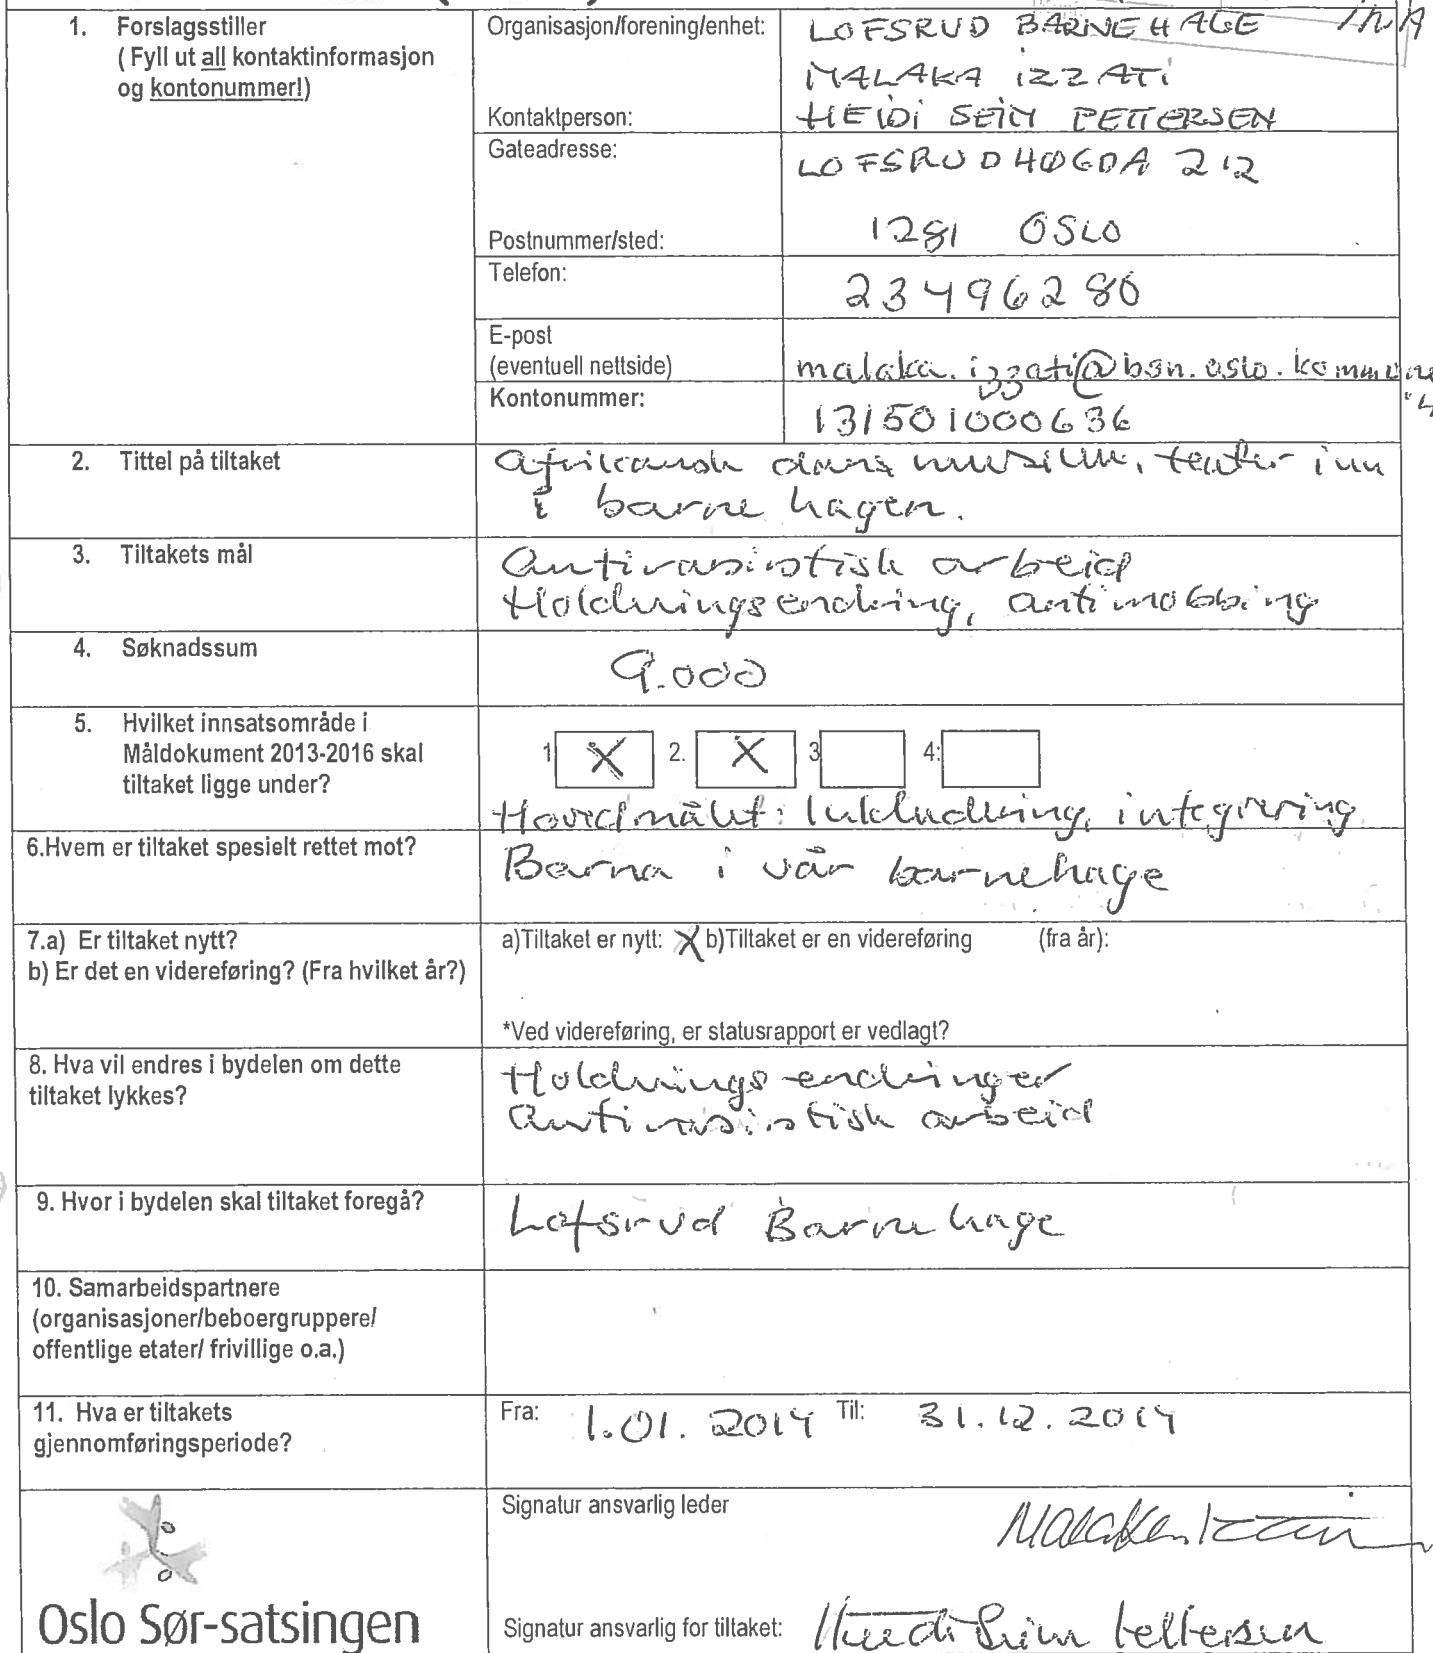 1. Forslagsstiller
( Fyll ut all kontaktinformasjon
og kontonummer!)
Organisasjon/forening/enhet: LOFSRUD BARNEHAGE
MALAKA IZZATI
Kontaktperson: HEIDI SEIM PETTERSEN
Gateadresse: LOFSRUDHØGDA 212
Postnummer/sted: 1281 OSLO
Telefon: 23496280
E-post
(eventuell nettside) malaka.izzati@bsn.oslo.kommune
Kontonummer: 131501000636
2. Tittel på tiltaket
afrikansk dans musikk, teater inn
i barnehagen.
3. Tiltakets mål
Antirasistisk arbeid
Holdningsendring, antimobbing
4. Søknadssum
9.000
5. Hvilket innsatsområde i
Måldokument 2013-2016 skal
tiltaket ligge under?
1 X 2. X 3 4:
Hovedmålet: Inkludering, integrering
6.Hvem er tiltaket spesielt rettet mot?
Barna i vår barnehage
7.a) Er tiltaket nytt?
b) Er det en videreføring? (Fra hvilket år?)
a)Tiltaket er nytt: X b)Tiltaket er en videreføring (fra år):
*Ved videreføring, er statusrapport er vedlagt?
8. Hva vil endres i bydelen om dette
tiltaket lykkes?
Holdningsendringer
Antirasistisk arbeid
9. Hvor i bydelen skal tiltaket foregå?
Lofsrud Barnehage
10. Samarbeidspartnere
(organisasjoner/beboergruppere/
offentlige etater/ frivillige o.a.)
11. Hva er tiltakets
gjennomføringsperiode?
Fra: 1.01.2014 Til: 31.12.2014
Oslo Sør-satsingen
Signatur ansvarlig leder Malaka Izzati
Signatur ansvarlig for tiltaket: Heidi Seim Pettersen